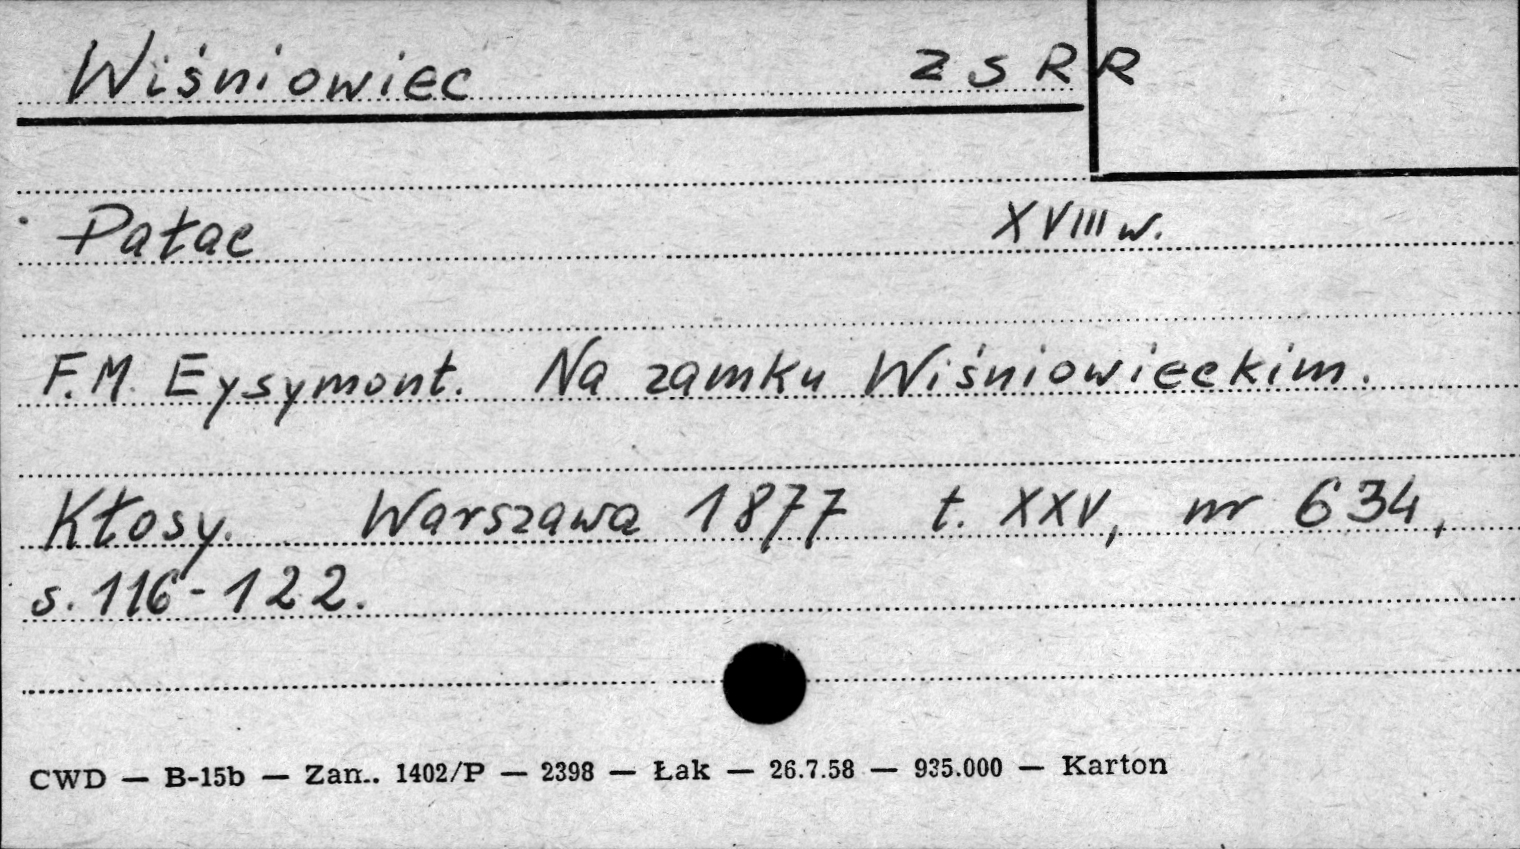 Wiśniowiec ZSRR
Pałac XVIII w.
F.M. Eysymont. Na zamku Wiśniowieckim.
Kłosy. Warszawa 1877 t. XXV, nr 634,
s. 116-122.
CWD — B-15b — Zam.. 1402/P — 2398 — Łak — 26.7.58 — 935.000 — Karton